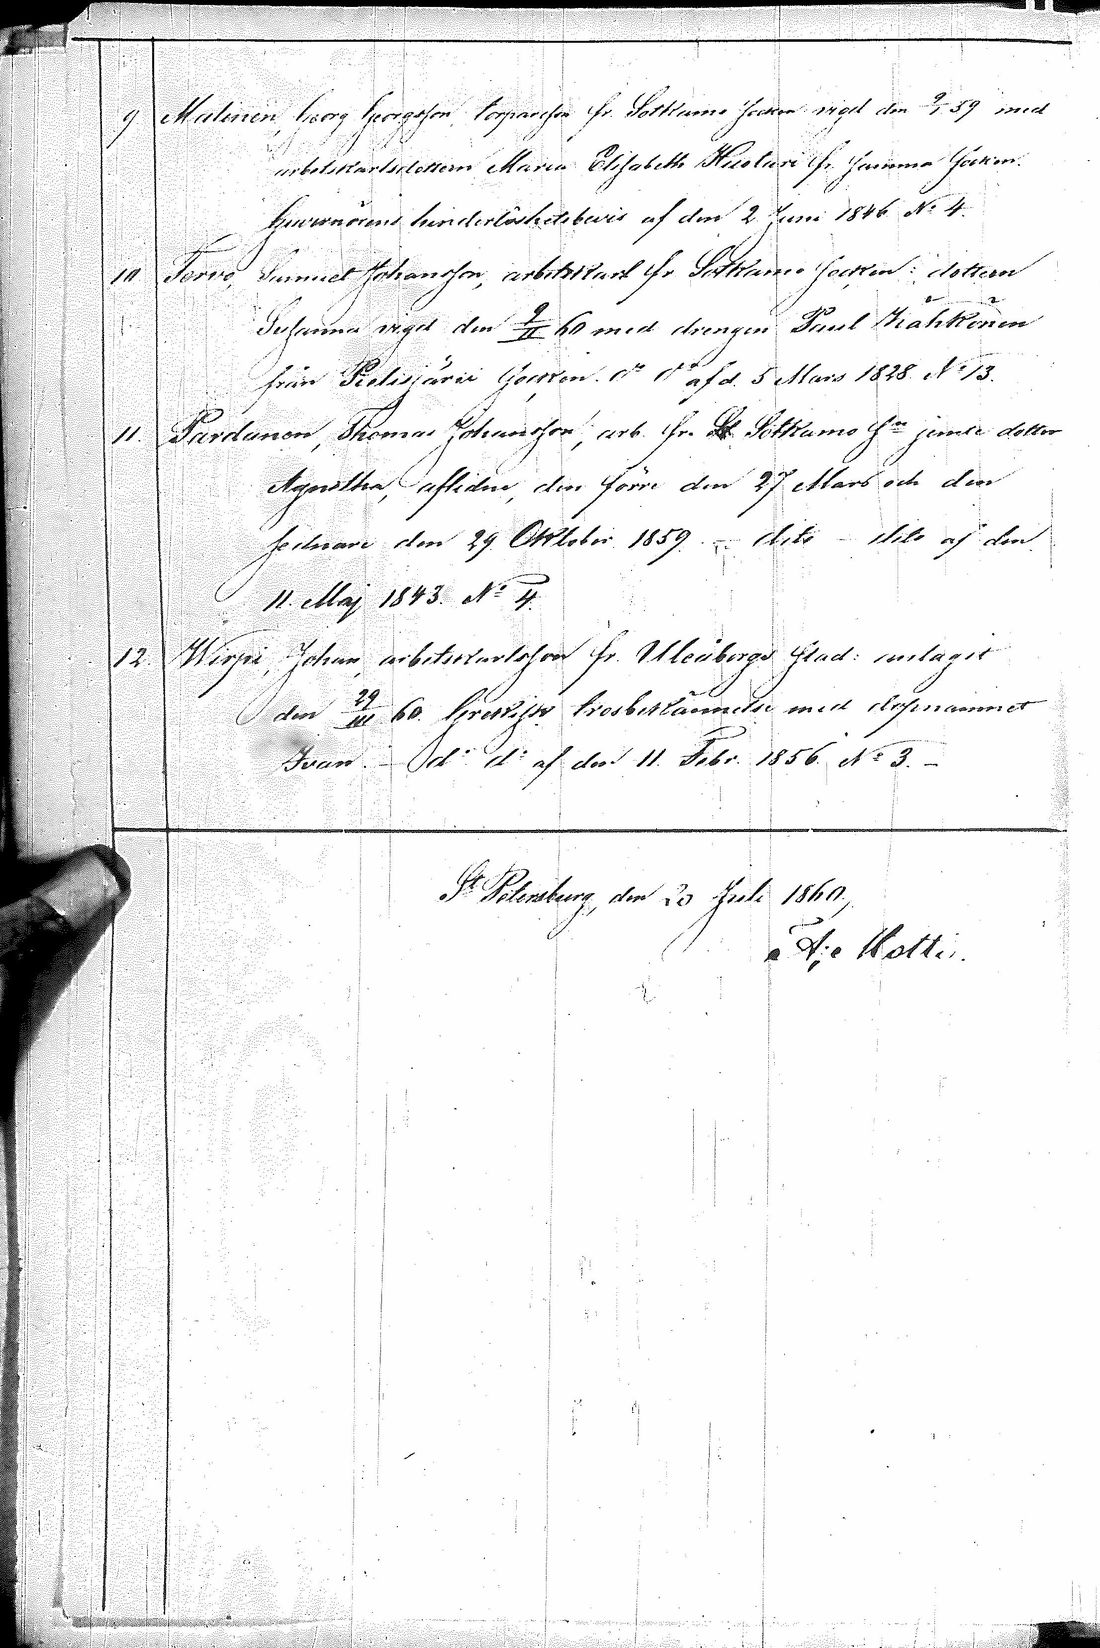 9 Malinen, Georg Georgsson, torpareson fr. Sotkamo socken vigd den 9/I 59 med
arbetskarlsdottern Maria Elisabeth Huotari fr. samma socken.
Guvernörens hinderlöshetsbevis af den 2 Juni 1846 No 4.
10 Tervo, Samuel Johansson, arbetskarl fr. Sotkamo socken: dottern
Susanna vigd den 9/II 60 med drengen Paul Kähkönen
från Pielisjärvi socken. do do af d. 5 Mars 1828. No 13.
11. Pardanen, Thomas Johansson, arb. fr. Sotkamo sn jemte dotter
Agnetha, aflidne, den förre den 27 Mars och den
sednare den 29 Oktober 1859. – dito – dito af den
11. Maj 1843. No 4.
12. Wirpi, Johan, arbetskarlsson fr. Uleåborgs stad: antagit
den 29/III 60. Grekisk trosbekännelse med dopnamnet
Ivan. – do do af den 11. Febr. 1856. No 3. –
St Petersburg, den 20 Juli 1860,